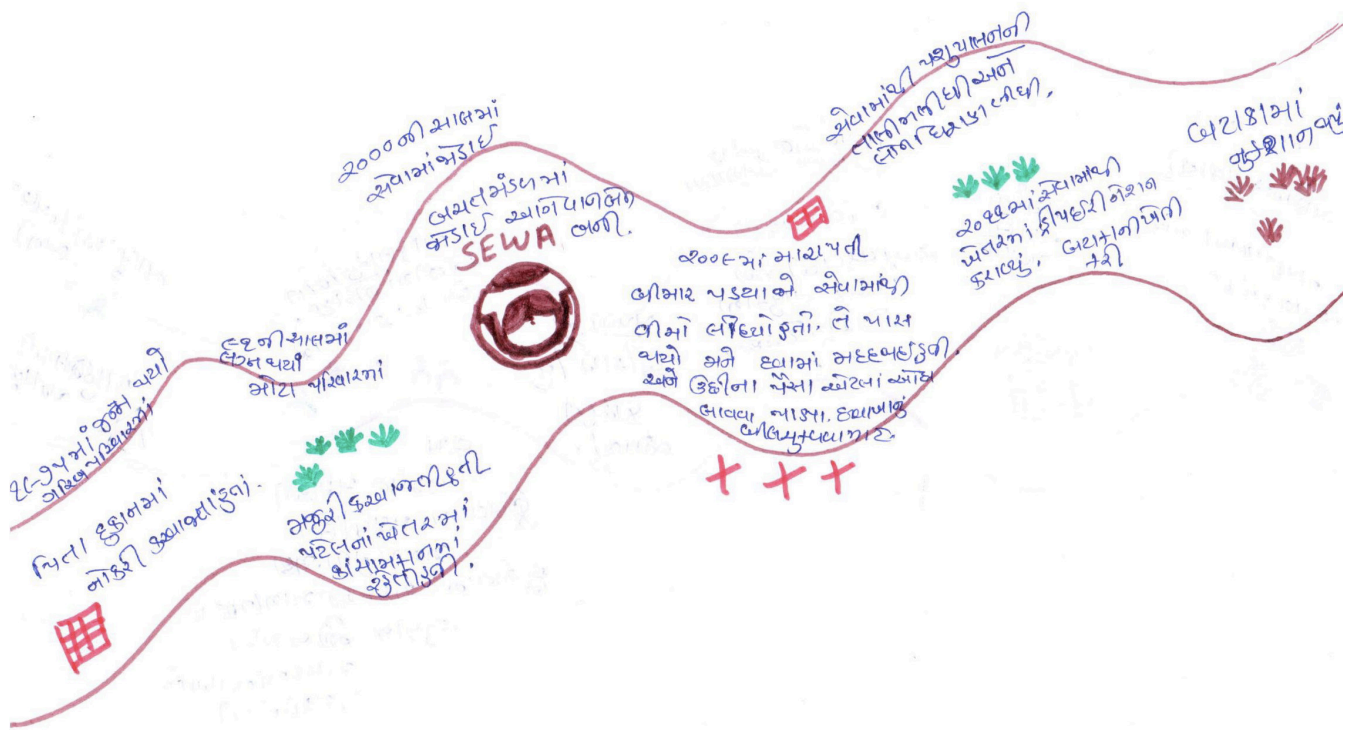 ૧૯૭૫માં જન્મ થયો
ગરિબ પરિવારમાં
પિતા દુકાનમાં
નોકરી કરવા જતાં હતાં.
૯૨ની સાલમાં
લગ્ન થયાં
મોટા પરિવારમાં
મજુરી કરવા જતી હતી
પટેલનાં ખેતરમાં
કાંચા મકાનમાં
રહેતી હતી.
૨૦૦૦ની સાલમાં
સેવામાં જોડાઈ
બચત મંડળમાં
જોડાઈ આગેવાન બેન
બની.
SEWA
૨૦૦૯માં મારા પતી
બીમાર પડયા મે સેવામાંથી
વીમો લીધ્યો હતો. તે પાસ
થયો મને દવામાં મદદ થઈ હતી.
અને ઉછીના પૈસા એટલાં ઓછા
લાવવા પડ્યા. દવાખાનું
બીલ ચુકવવા માટે
સેવામાંથી પશુપાલનની
તાલીમ લીધી અને
લોન ધિરાણ લીધી.
૨૦૧૧માં સેવામાંથી
ખેતરમાં ડ્રીપઈરીગેશન
કરાવ્યું. બટાકાની ખેતી
કરી
બટાકામાં
નુકશાન થયું